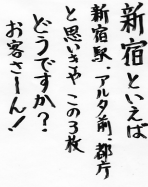 新宿といえば
新宿駅・アルタ前・都庁
と思いきや この3枚
どうですか？
お客さーん！